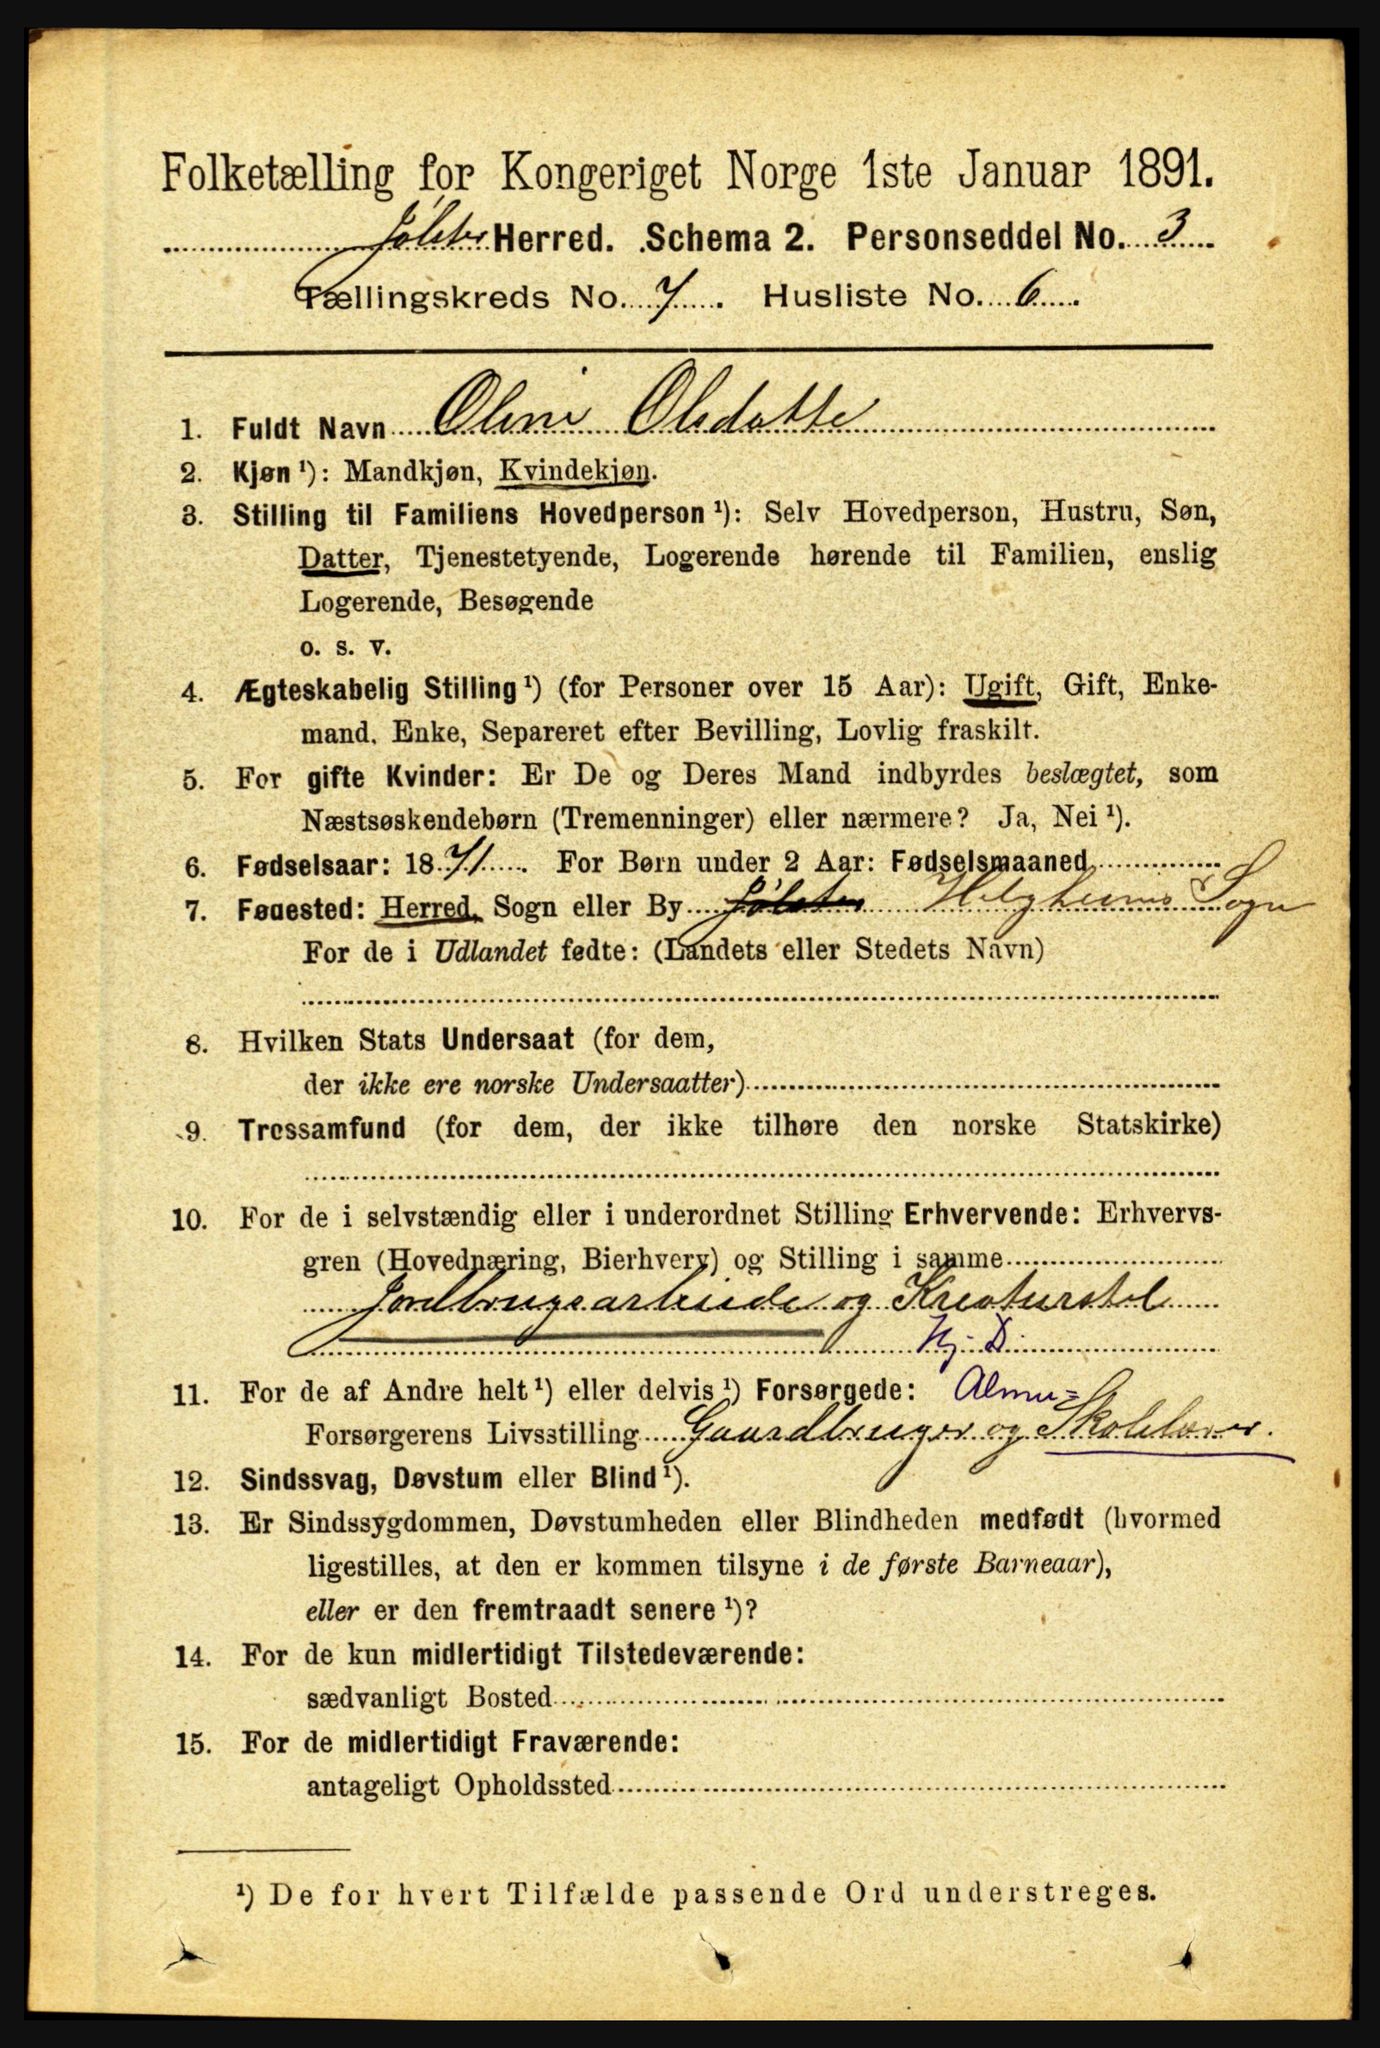 Folketælling for Kongeriget Norge 1ste Januar 1891.
Jølster Herred. Schema 2. Personseddel No. 3
Tællingskreds No. 7. Husliste No. 6.
1. Fuldt Navn Oline Olsdatte
2. Kjøn ¹): Mandkjøn, Kvindekjøn.
3. Stilling til Familiens Hovedperson ¹): Selv Hovedperson, Hustru, Søn,
Datter, Tjenestetyende, Logerende hørende til Familien, enslig
Logerende, Besøgende
o. s. v.
4. Ægteskabelig Stilling ¹) (for Personer over 15 Aar): Ugift, Gift, Enke-
mand, Enke, Separeret efter Bevilling, Lovlig fraskilt.
5. For gifte Kvinder: Er De og Deres Mand indbyrdes beslægtet, som
Næstsøskendebørn (Tremenninger) eller nærmere? Ja, Nei ¹).
6. Fødselsaar: 1871. For Børn under 2 Aar: Fødselsmaaned
7. Fødested: Herred, Sogn eller By Jølster Helgheims Sogn
For de i Udlandet fødte: (Landets eller Stedets Navn)
8. Hvilken Stats Undersaat (for dem,
der ikke ere norske Undersaatter)
9. Trossamfund (for dem, der ikke tilhøre den norske Statskirke)
10. For de i selvstændig eller i underordnet Stilling Erhvervende: Erhvervs-
gren (Hovednæring, Bierhverv) og Stilling i samme
Jordbrugsarbeide og Kreaturstel
Hj. D
11. For de af Andre helt ¹) eller delvis ¹) Forsørgede: Almu=
Forsørgerens Livsstilling Gaardbruger og Skolelærer.
12. Sindssvag, Døvstum eller Blind ¹).
13. Er Sindssygdommen, Døvstumheden eller Blindheden medfødt (hvormed
ligestilles, at den er kommen tilsyne i de første Barneaar),
eller er den fremtraadt senere ¹)?
14. For de kun midlertidigt Tilstedeværende:
sædvanligt Bosted
15. For de midlertidigt Fraværende:
antageligt Opholdssted
¹) De for hvert Tilfælde passende Ord understreges.